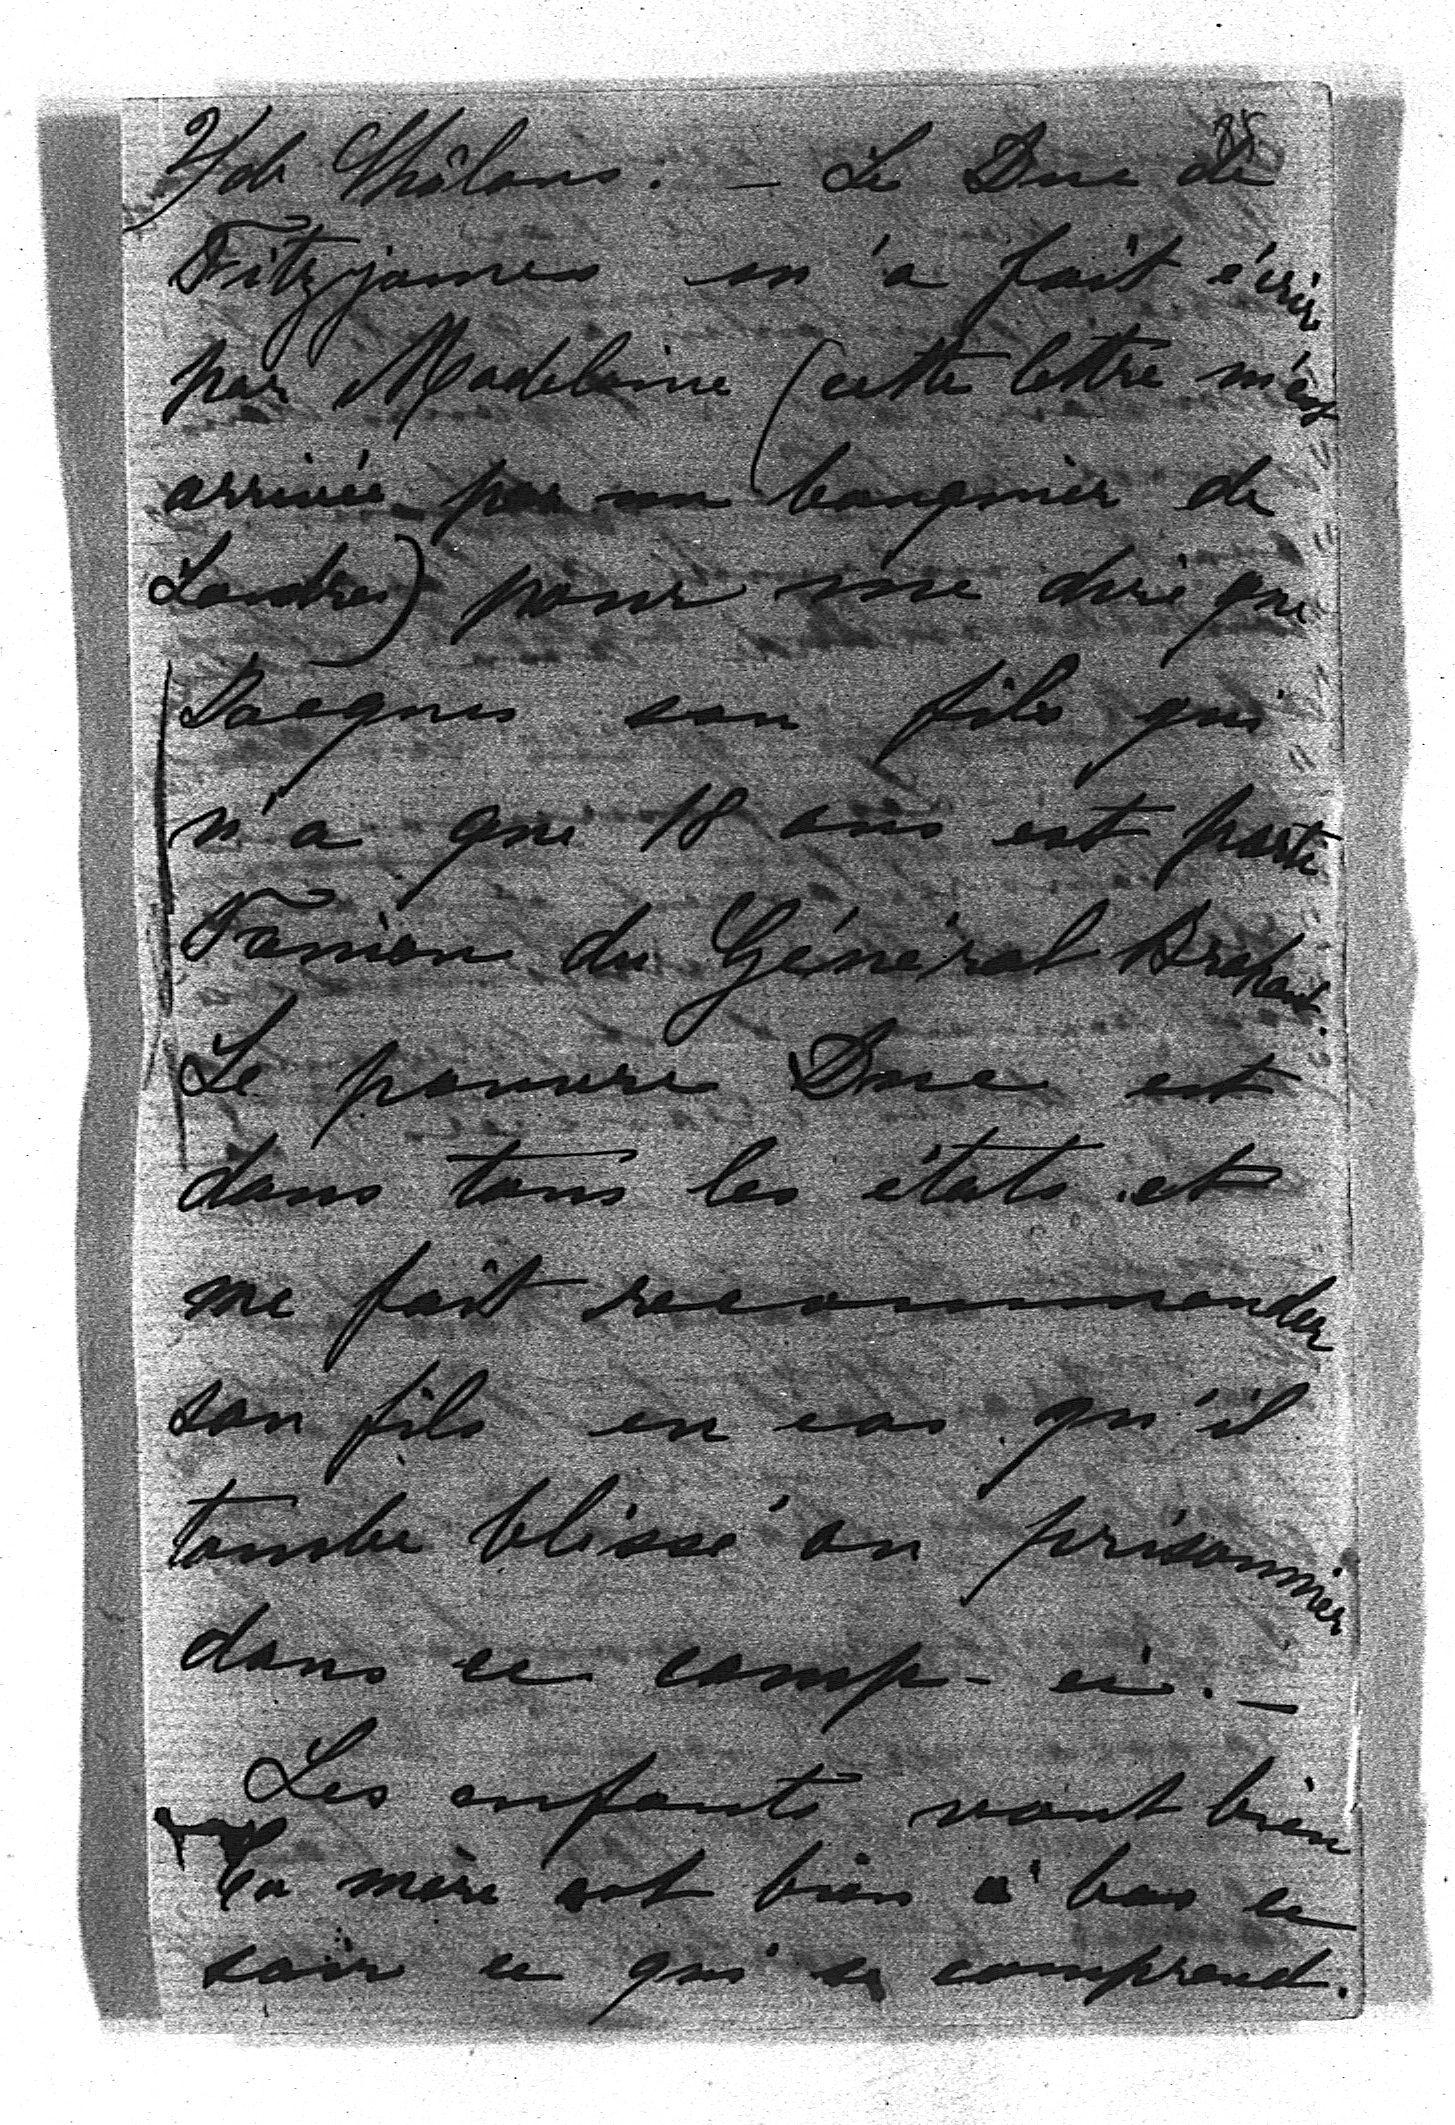 7) de Châlons. — Le Duc de
Fitzjames m'a fait écrire
par Madeleine (cette lettre m'est
arrivée par un banquier de
Londres) pour me dire que
Jacques son fils qui
n'a que 18 ans est porte
Fanion du Général
Le pauvre Duc est
dans tous les états et
me fait recommander
son fils en cas qu'il
tombe blessé ou prisonnier
dans ce camp-ci. —
Les enfants vont bien
Ta mère est bien à bas ce
soir ce qui se comprend.